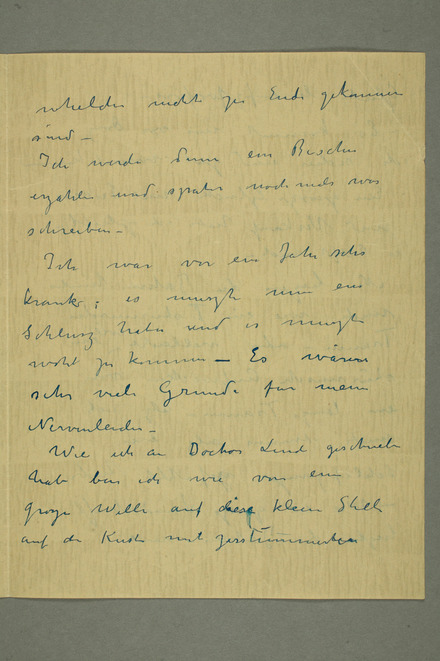 nicht zu Ende gekommen
sind –
Ich werde dann ein Bischen
erzählen und später noch mals was
schreiben –
Ich war vor ein Jahr sehr
krank; es muszte nun ein
Schlusz haben und es muszte
nicht zu kommen – Es wären
sehr viele Grunde fur mein
Nervenleiden –
Wie ich an Doctor Lind geschrieben
habe bin ich wie von ein
grosze Welle auf diese kleine Stelle
auf der Kuste mit